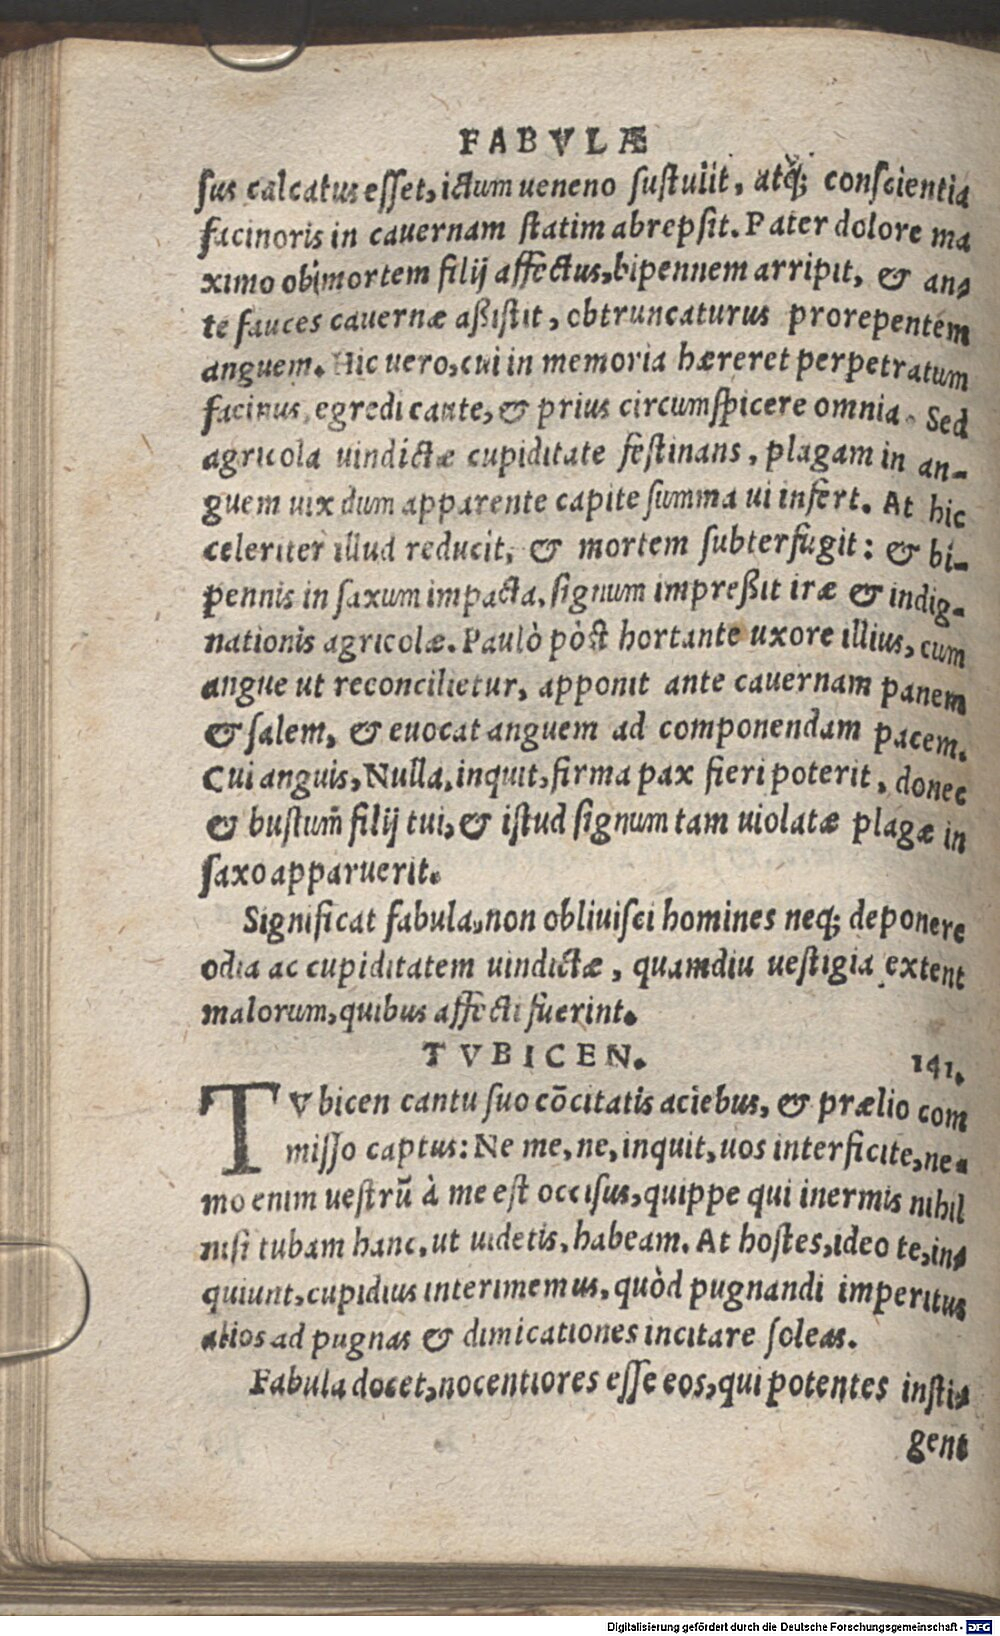 FABVLÆ
sus calcatus esset, ictum ueneno sustulit, atq; conscientia
facinoris in cauernam statim abrepsit. Pater dolore ma
ximo ob mortem filij affectus, bipennem arripit, & an-
te fauces cauernæ aßistit, obtruncaturus prorepentem
anguem. Hic uero, cui in memoria hæreret perpetratum
facinus, egredi caute, & prius circumspicere omnia. Sed
agricola uindictæ cupiditate festinans, plagam in an-
guem uix dum apparente capite summa ui infert. At hic
celeriter illud reducit, & mortem subterfugit: & bi-
pennis in saxum impacta, signum impreßit iræ & indig-
nationis agricolæ. Paulò pòst hortante uxore illius, cum
angue ut reconcilietur, apponit ante cauernam panem
& salem, & euocat anguem ad componendam pacem.
Cui anguis, Nulla, inquit, firma pax fieri poterit, donec
& bustum filij tui, & istud signum tam uiolatæ plagæ in
saxo apparuerit.
Significat fabula, non obliuisci homines neq; deponere
odia ac cupiditatem uindictæ, quamdiu uestigia extent
malorum, quibus affecti fuerint.
TVBICEN. 141.
TVbicen cantu suo cōcitatis aciebus, & prælio com
misso captus: Ne me, ne, inquit, uos interficite, ne-
mo enim uestrū à me est occisus, quippe qui inermis nihil
nisi tubam hanc, ut uidetis, habeam. At hostes, ideo te, in-
quiunt, cupidius interimemus, quòd pugnandi imperitus
alios ad pugnas & dimicationes incitare soleas.
Fabula docet, nocentiores esse eos, qui potentes insti-
gent
Digitalisierung gefördert durch die Deutsche Forschungsgemeinschaft - DFG